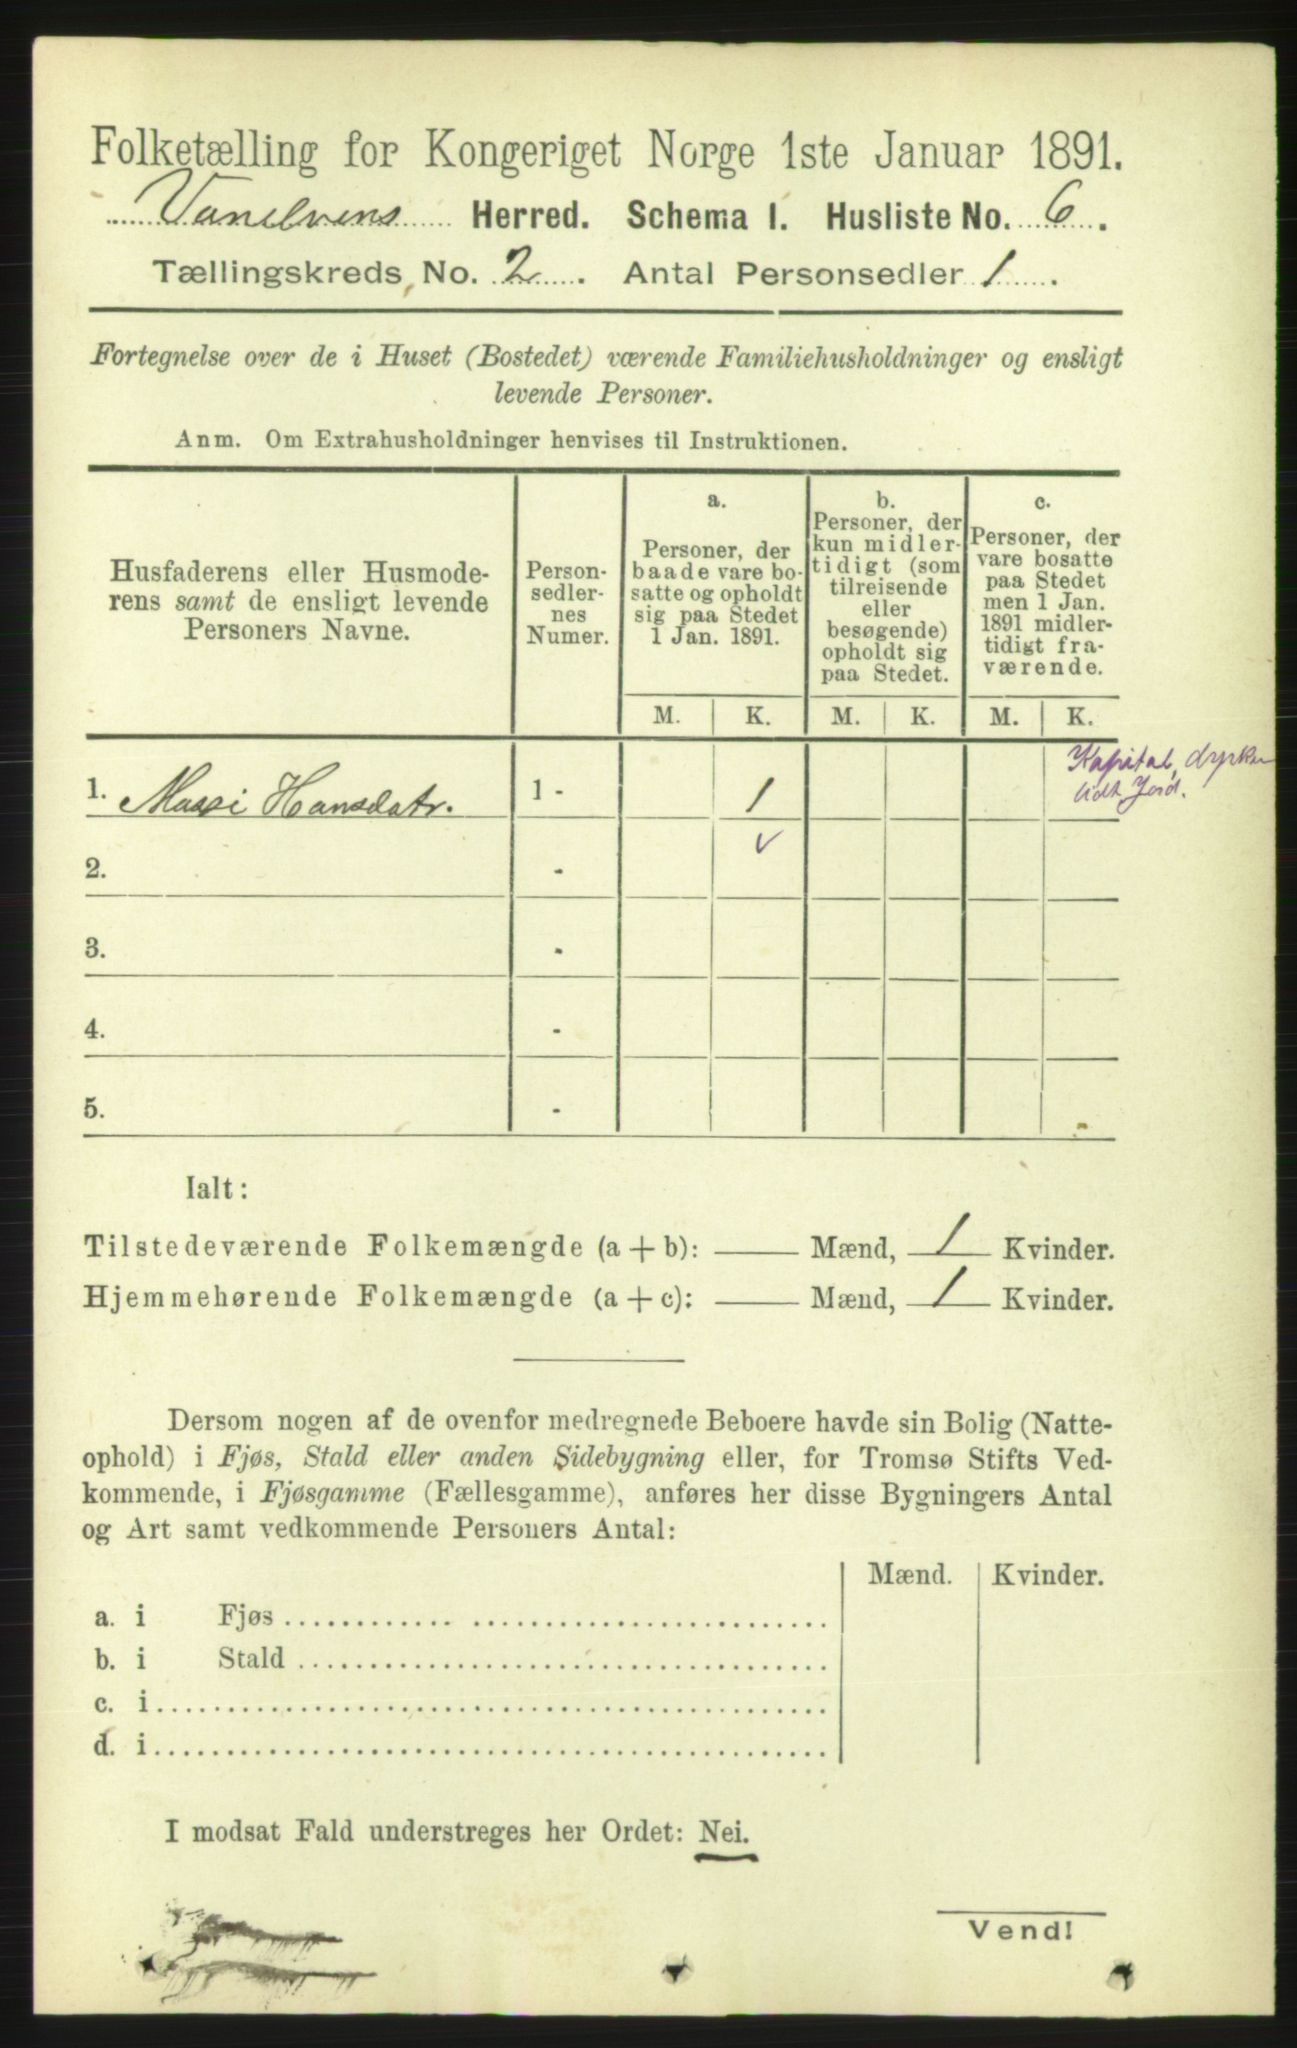 Folketælling for Kongeriget Norge 1ste Januar 1891.
Vanelvens Herred. Schema I. Husliste No. 6.
Tællingskreds No. 2. Antal Personsedler 1.
Fortegnelse over de i Huset (Bostedet) værende Familiehusholdninger og ensligt
levende Personer.
Anm. Om Extrahusholdninger henvises til Instruktionen.
Husfaderens eller Husmode-
rens samt de ensligt levende
Personers Navne.
Person-
sedler-
nes
Numer.
a.
Personer, der
baade vare bo-
satte og opholdt
sig paa Stedet
1 Jan. 1891.
b.
Personer, der
kun midler-
tidigt (som
tilreisende
eller
besøgende)
opholdt sig
paa Stedet.
c.
Personer, der
vare bosatte
paa Stedet
men 1 Jan.
1891 midler-
tidigt fra-
værende.
M. K. M. K. M. K.
1. Massi Hansdatr. 1 - 1
Kapital, dyrker
lidt Jord.
2. - ✓
3. -
4. -
5. -
Ialt:
Tilstedeværende Folkemængde (a + b): —— Mænd, 1 Kvinder.
Hjemmehørende Folkemængde (a + c): —— Mænd, 1 Kvinder.
Dersom nogen af de ovenfor medregnede Beboere havde sin Bolig (Natte-
ophold) i Fjøs, Stald eller anden Sidebygning eller, for Tromsø Stifts Ved-
kommende, i Fjøsgamme (Fællesgamme), anføres her disse Bygningers Antal
og Art samt vedkommende Personers Antal:
Mænd. Kvinder.
a. i Fjøs
b. i Stald
c. i
d. i
I modsat Fald understreges her Ordet: Nei.
Vend!